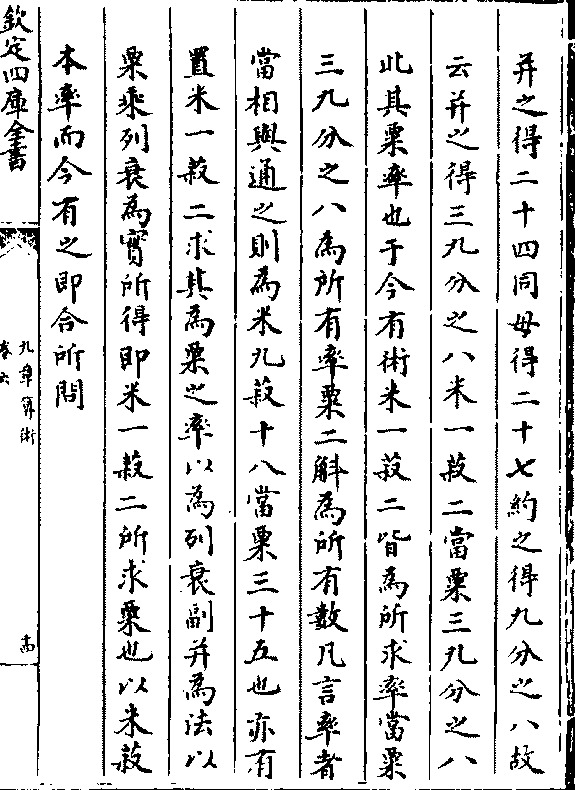 并之得二十四同母得二十七約之得九分之八故
云并之得三九分之八米一菽二當粟三九分之八
此其粟率也于今有術米一菽二皆為所求率當粟
三九分之八為所有率粟二斛為所有數凡言率者
當相與通之則為米九菽十八當粟三十五也亦有
置米一菽二求其為粟之率以為列衰副并為法以
粟乘列衰為實所得即米一菽二所求粟也以米菽
本率而今有之即合所問
欽定四庫全書
九章算術
卷六